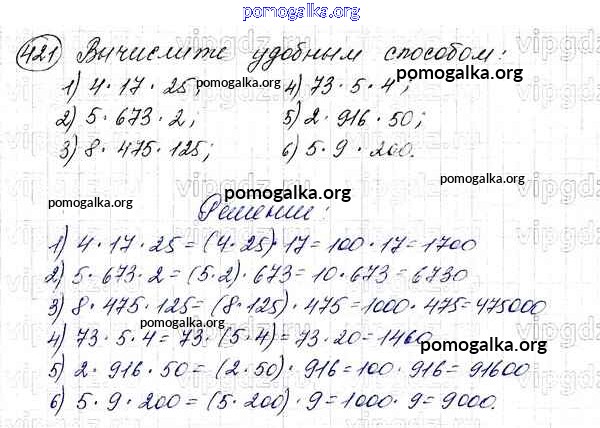 pomogalka.org
421 Вычислите удобным способом:
1) 4·17·25; pomogalka.org 4) 73·5·4; pomogalka.org
2) 5·673·2; 5) 2·916·50;
3) 8·475·125; 6) 5·9·200.
pomogalka.org
pomogalka.org
pomogalka.org
Решение:
1) 4·17·25=(4·25)·17=100·17=1700
2) 5·673·2=(5·2)·673=10·673=6730
3) 8·475·125=(8·125)·475=1000·475=475000
pomogalka.org
4) 73·5·4=73·(5·4)=73·20=1460
pomogalka.org
5) 2·916·50=(2·50)·916=100·916=91600
6) 5·9·200=(5·200)·9=1000·9=9000.